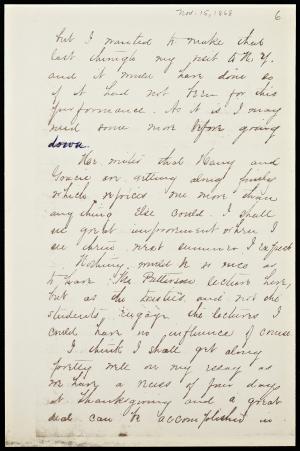 Nov. 15, 1868
6
but I wanted to make that
last through my visit to N. Y.
and it would have done so
if it had not been for this
performance. As it is I may
need some more before going
down.
He writes that Harry and
are getting along finely
which rejoices me more than
anything else could. I shall
see great improvement when I
see them next summer I expect.
Nothing would be so nice as
to have Mr. Patterson lecture here,
but as the Trustees and not the
students, engage the lecturers I
could have no influence of course.
I think I shall get along
pretty well on my essay as
we have a recess of four days
at Thanksgiving and a great
deal can be accomplished in